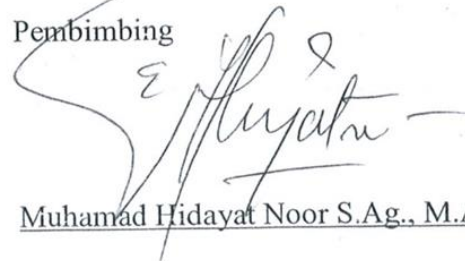 Pembimbing
Muhamad Hidayat Noor S.Ag., M.